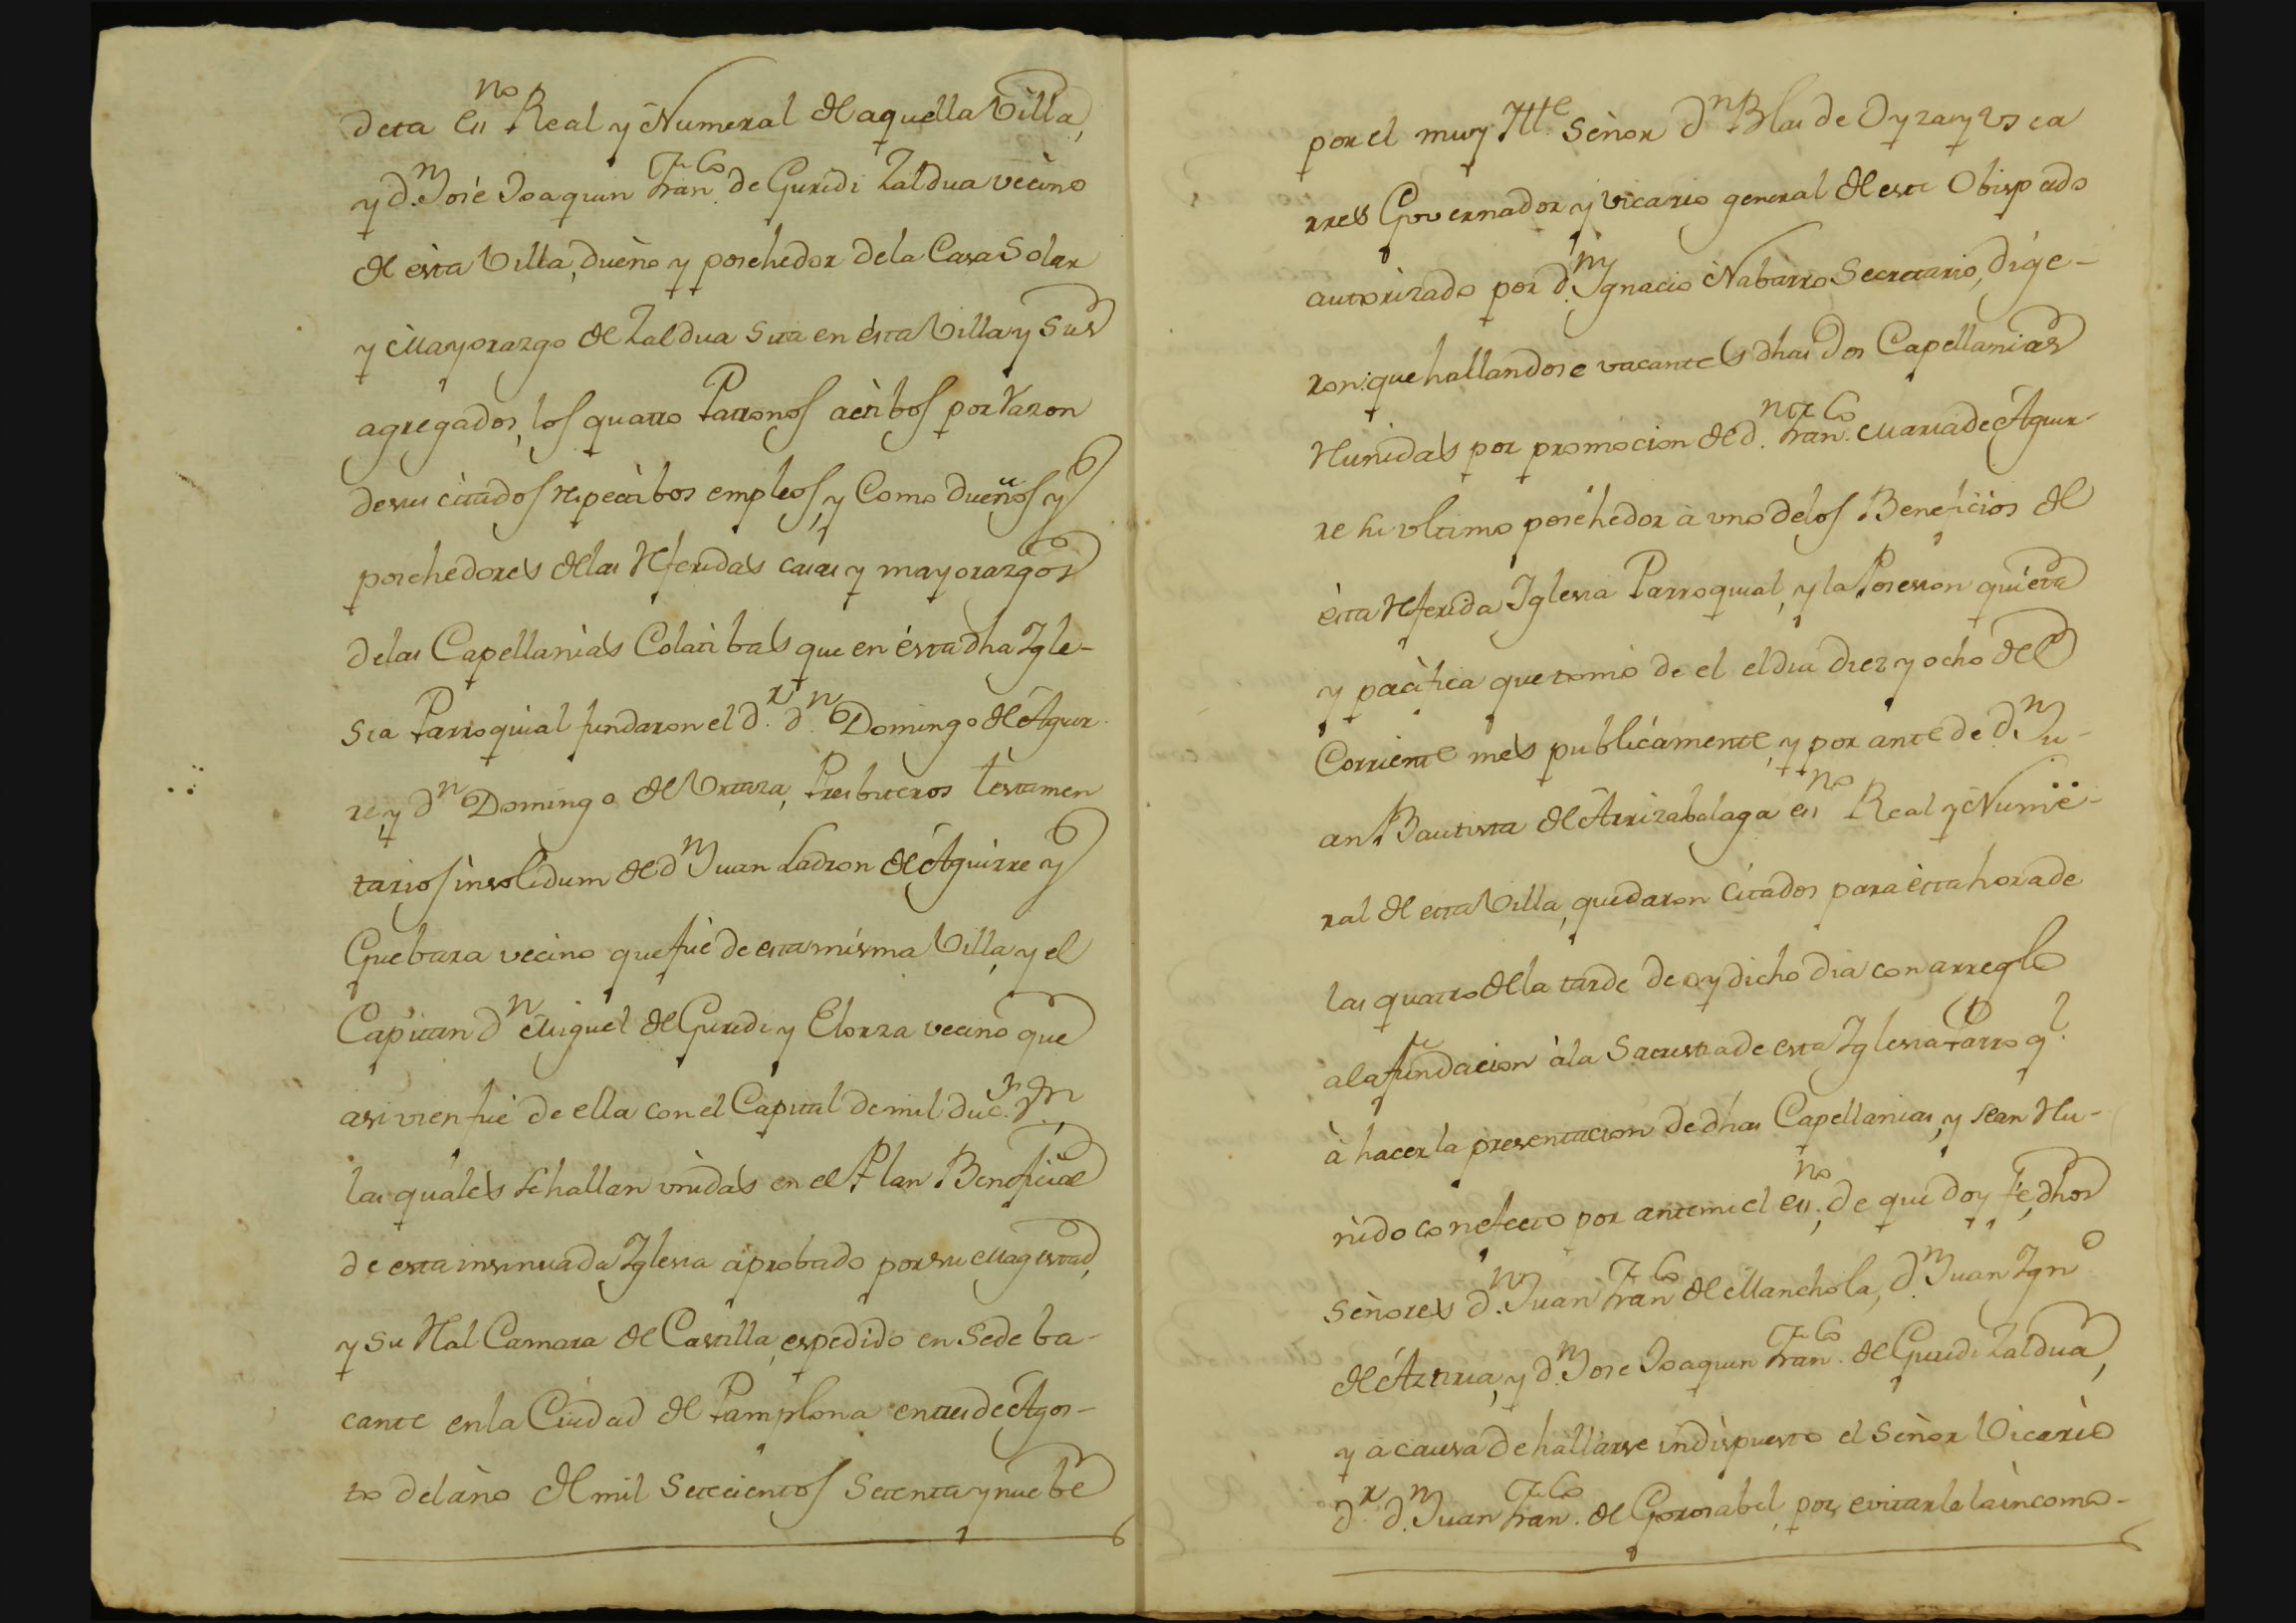 deta es.no Real y Numeral de aquella Villa,
y d.n José Joaquin Fran.co de Guridi Zaldua vecino
de ésta Villa, dueño y posehedor dela Casa Solar
y Mayorazgo de Zaldua sita en ésta Villa y sus
agregados, los quatro Patronos actibos por razon
de sus citados respectibos empleos, y Como dueños y
posehedores de las referidas casas y mayorazgos
delas Capellanias Colatibas que en ésta dha Igle-
sia Parroquial fundaron el d.r d.n Domingo de Aguir-
re, y d.n Domingo de Urtaza, Presbiteros testamen
tarios insolidum de d.n Juan Ladron de Aguirre y
Guebara vecino que fué de esta misma Villa, y el
Capitan d.n Miguel de Guridi y Elorza vecino que
asi vien fué de ella con el Capital de mil duc.s v.n,
las quales se hallan vnidas en el Plan Beneficial
de esta insinuada Iglesia aprobado por su Magestad,
y su Real Camara de Castilla, espedido en Sede ba-
cante en la Ciudad de Pamplona en tres de Agos-
to del año de mil Setecientos Setenta y nuebe
por el muy Ille Señor d.n Blas de Oyza y Us ca
rres Governador y vicario general de este Obispado
autorizado por d.n Ygnacio Nabarro Secretario, dige-
ron: que hallandose vacantes dhas dos Capellanias
Runidas por promocion de d.n Fran.co Maria de Aguir-
re su vltimo posehedor à vno delos Beneficios de
ésta referida Iglesia Parroquial, y la Posesion quieta
y pacifica que tomó de el el dia diez y ocho del
Corriente mes publicamente, y por ante de d.n Ju-
an Bautista de Arrizabalaga es.no Real y Nume-
ral de esta Villa, quedaron Citados para ésta hora de
las quatro de la tarde de oy dicho dia con arreglo
a la fundacion à la Sacristia de esta Iglesia Parroq.l
à hacer la presentacion de dhas Capellanias, y sean Ru-
nido con efecto por ante mi el es.no, de que doy fe, dhos
Señores d.n Juan Fran.co de Manchola, d.n Juan Ign.o
de Azttiria, y d.n Jose Joaquin Fran.co de Guridi Zaldua,
y a causa de hallarse indispuesto el Señor Vicario
d.r d.n Juan Fran.co de Gorosabel, por evitarle la incomo-